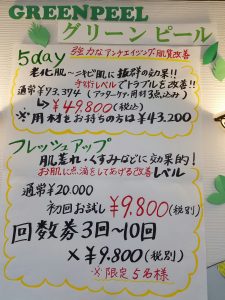 GREENPEEL
グリーンピール
5day 強力なアンチエイジング・肌質改善
老化肌〜ニキビ肌に抜群の効果!!
手術レベルでトラブルを改善!!
通常¥93,394(アフターケアー用材3点込み)
↳¥49,800(税込)
※用材をお持ちの方は¥43,200
フレッシュアップ
肌荒れ・くすみなどに効果的!
お肌に点滴をしてあげる改善レベル
通常¥20,000
初回お試し¥9,800(税別)
回数券3回〜10回
×¥9,800(税別)
※限定5名様